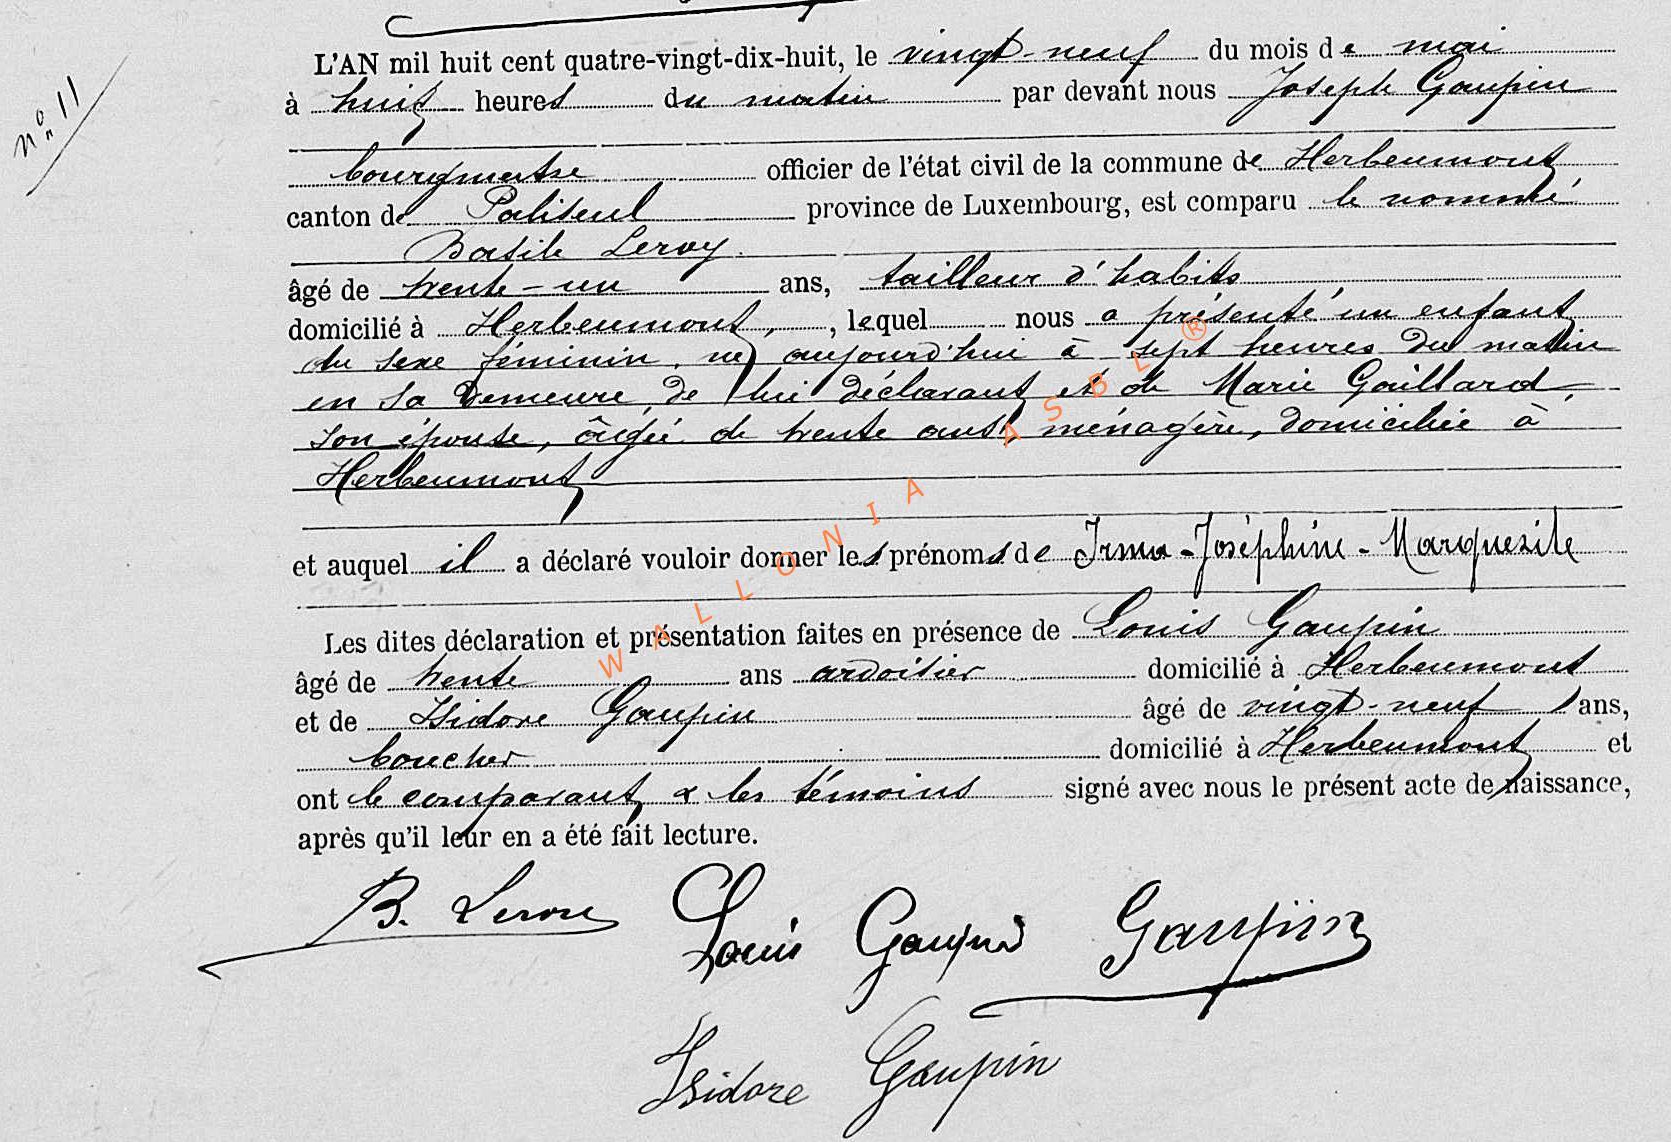 L'AN mil huit cent quatre-vingt-dix-huit, le vingt-neuf du mois de mai
à huit heures du matin par devant nous Joseph Gaupin
N° 11
bourgmestre officier de l'état civil de la commune de Herbeumont
canton de Paliseul province de Luxembourg, est comparu le nommé
Basile Leroy
âgé de trente-un ans, tailleur d'habits
domicilié à Herbeumont, , lequel nous a présenté un enfant
du sexe féminin, né aujourd'hui à sept heures du matin
en sa demeure, de lui déclarant et de Marie Gaillard,
son épouse, âgée de trente ans, ménagère, domiciliée à
Herbeumont
et auquel il a déclaré vouloir donner les prénoms de Irma-Joséphine-Marguerite
Les dites déclaration et présentation faites en présence de Louis Gaupin
âgé de trente ans ardoisier domicilié à Herbeumont
et de Isidore Gaupin âgé de vingt-neuf ans,
boucher domicilié à Herbeumont et
ont le comparant & les témoins signé avec nous le présent acte de naissance,
après qu'il leur en a été fait lecture.
B. Leroy Louis Gaupin Gaupin
Isidore Gaupin
WALLONIA ASBL ®